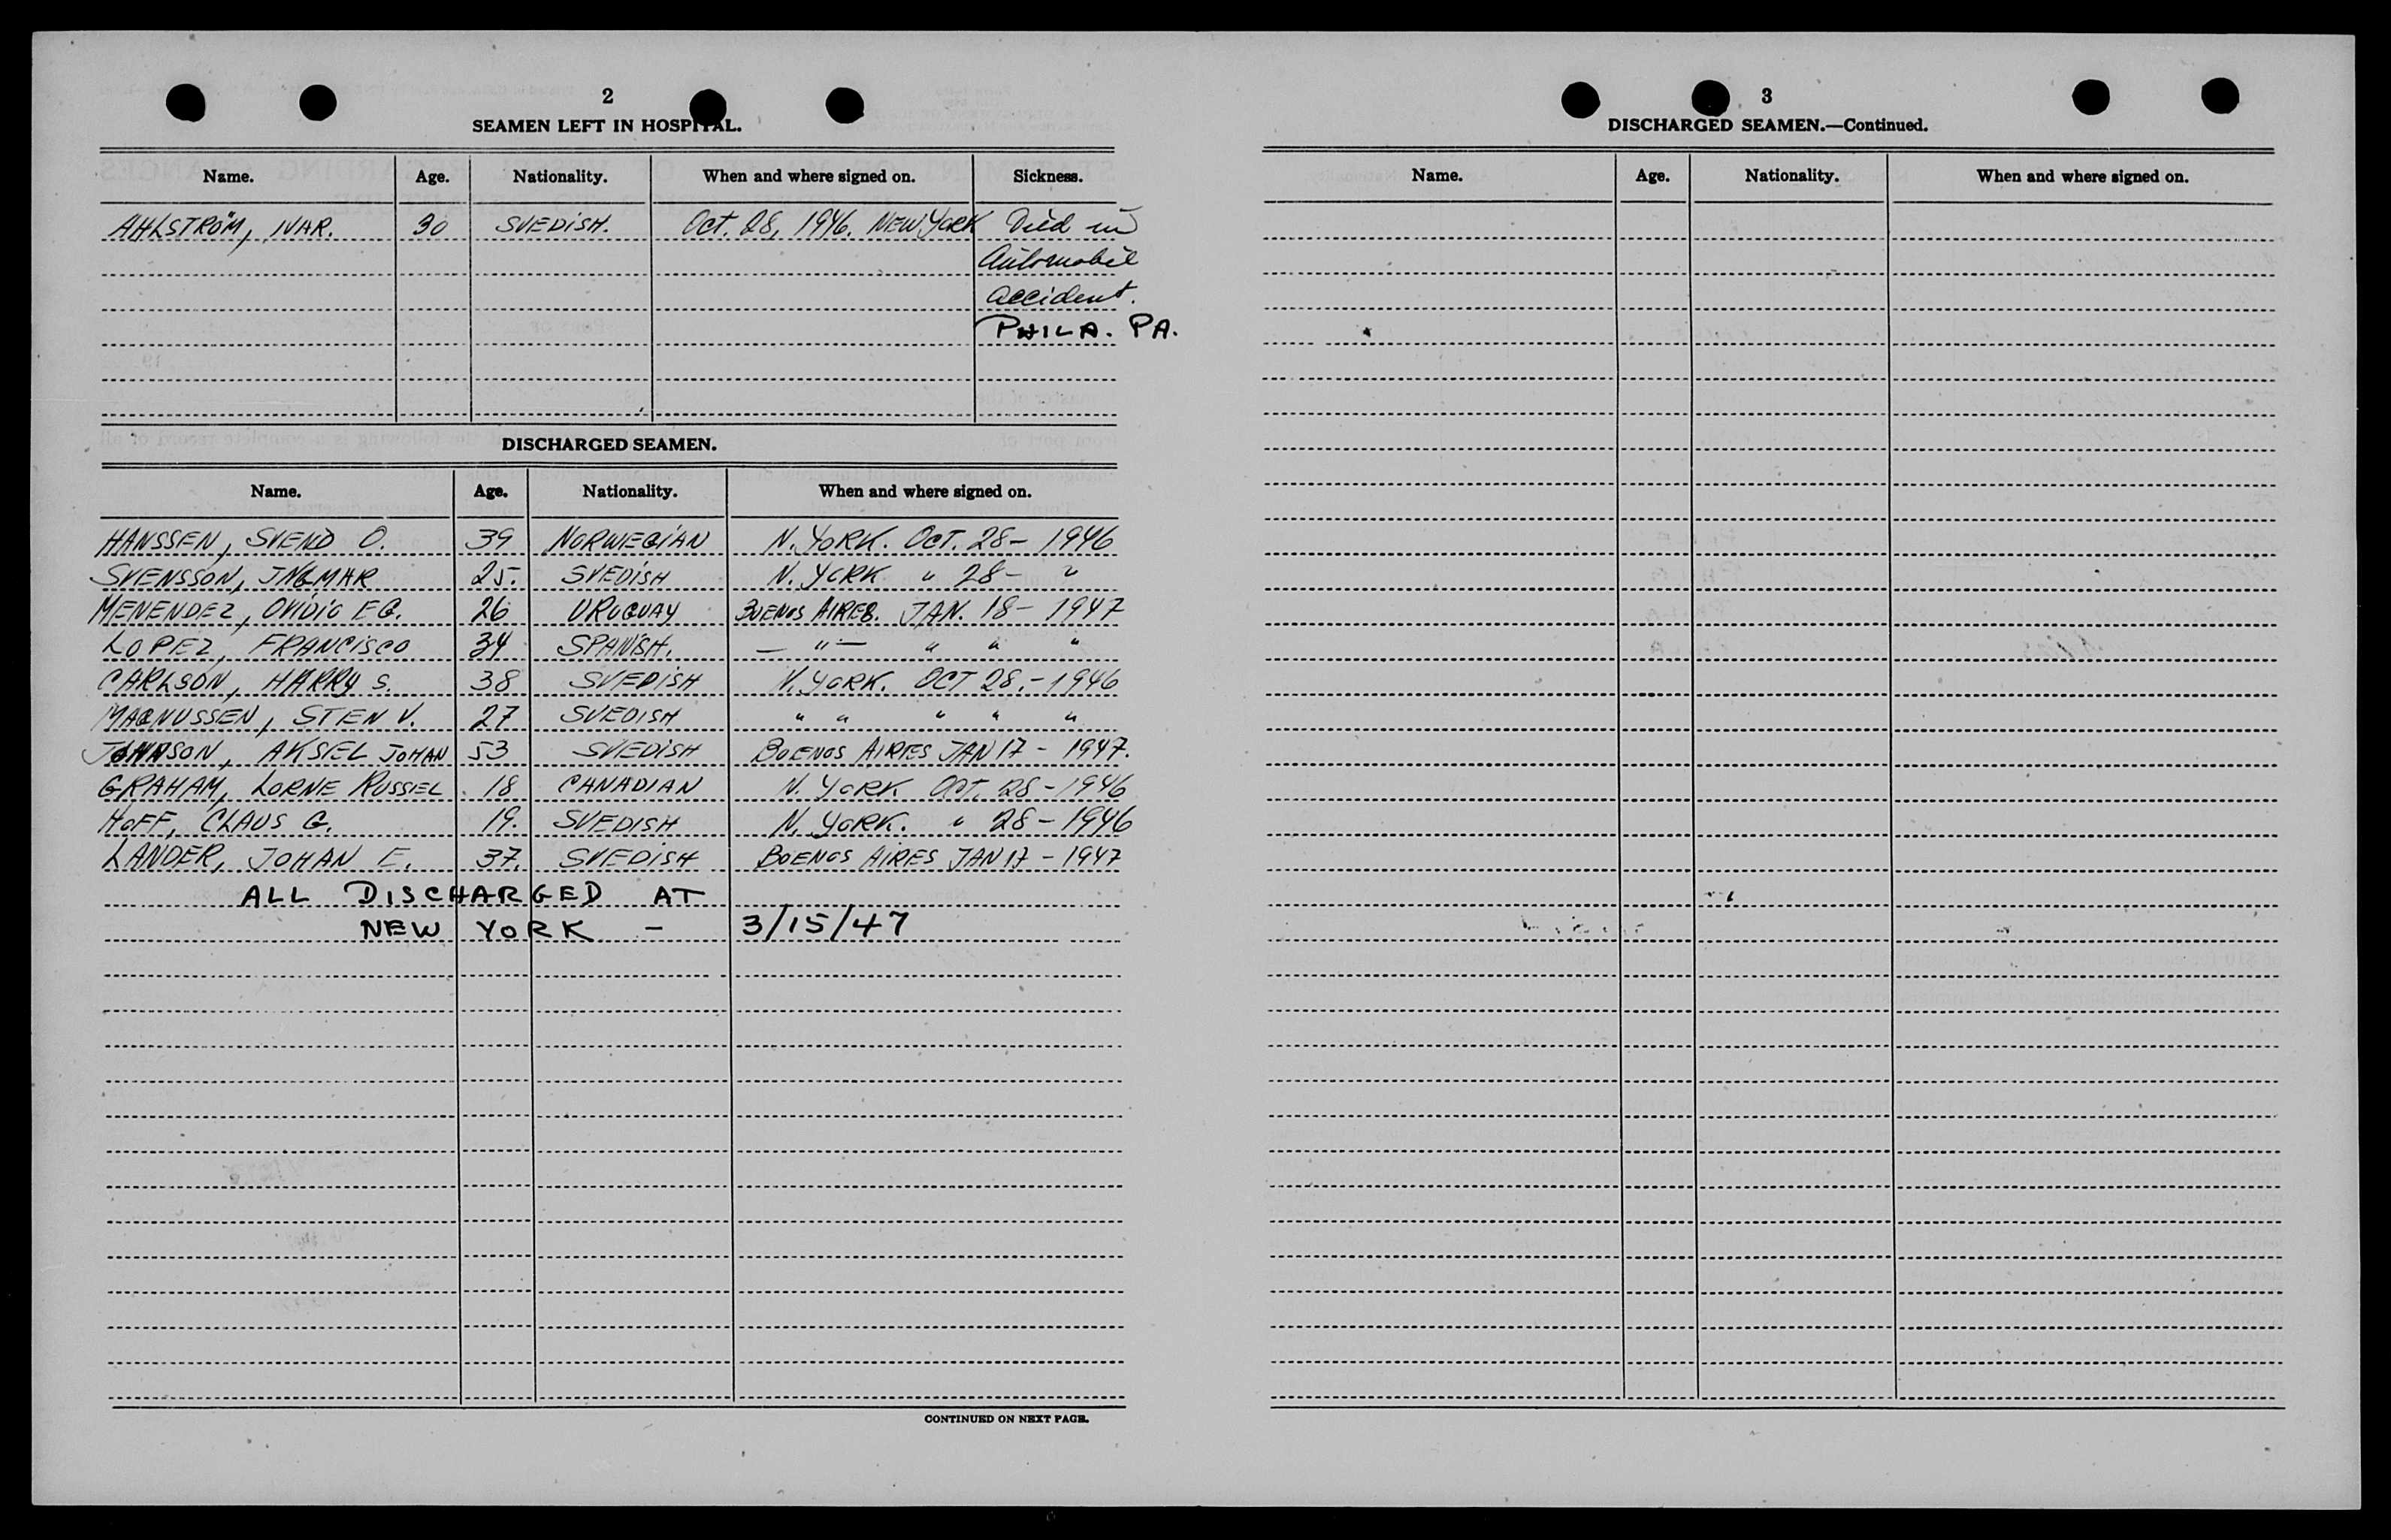 2
SEAMEN LEFT IN HOSPITAL.
Name. Age. Nationality. When and where signed on. Sickness.
AHLSTRÖM, IVAR. 30 SVEDISH. Oct. 28, 1946. NEW YORK Died in
Automobil
accident.
PHILA. PA.
DISCHARGED SEAMEN.
Name. Age. Nationality. When and where signed on.
HANSSEN, SVEND O. 39 NORWEGIAN N. YORK. OCT. 28- 1946
SVENSSON, INGMAR 25. SVEDISH N. YORK " 28- "
MENENDEZ, OVIDIO EG. 26 URUGUAY BUENOS AIRES. JAN. 18- 1947
LOPEZ, FRANCISCO 34 SPANISH. — " — " " "
CARLSON, HARRY S. 38 SVEDISH N. YORK. OCT 28.- 1946
MAGNUSSEN, STEN V. 27 SVEDISH " " " " "
JOHNSON, AKSEL JOHAN 53 SVEDISH BUENOS AIRES JAN 17 - 1947.
GRAHAM, LORNE RUSSEL 18 CANADIAN N. YORK OCT. 28 - 1946
HOFF, CLAUS G. 19. SVEDISH N. YORK. " 28 - 1946
LANDER, JOHAN E. 37. SVEDISH BUENOS AIRES JAN 17 - 1947
ALL DISCHARGED AT
NEW YORK - 3/15/47
CONTINUED ON NEXT PAGE.
3
DISCHARGED SEAMEN.—Continued.
Name. Age. Nationality. When and where signed on.